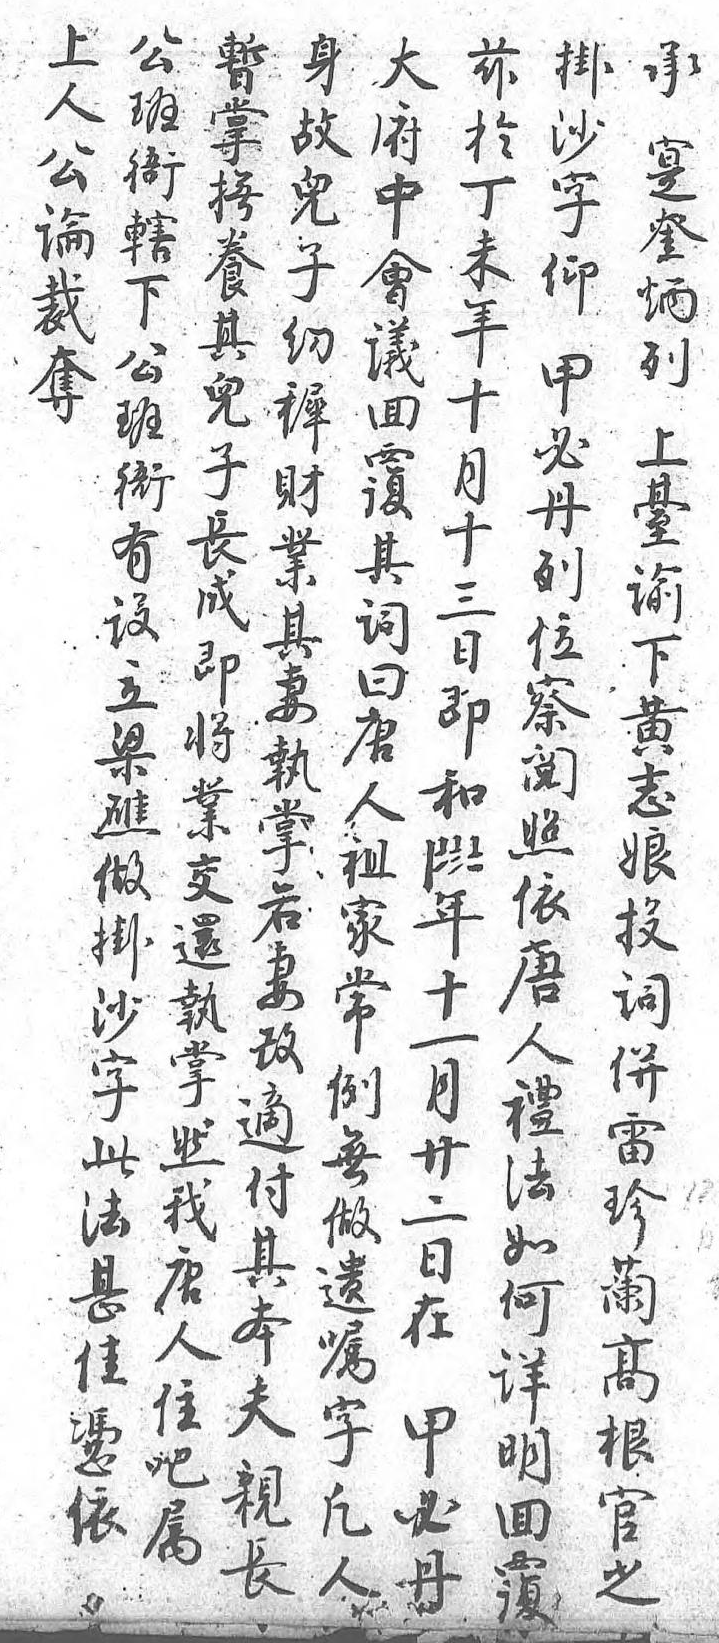 承 寔奎炳列 上臺諭下黃志娘投詞併雷珍蘭高根官之
掛沙字仰 甲必丹列位察閱照依唐人禮法如何詳明囬覆
茲於丁未年十月十三日即和年十一月廿二日在 甲必丹
大府中會議囬覆其詞曰唐人祖家常例無做遺囑字凡人
身故兒子幼穉財業其妻執掌若妻改適付其本夫親長
暫掌撫養其兒子長成即將業交還執掌然我唐人住吧属
公班衙轄下公班衙有設立梁礁做掛沙字此法甚佳憑依
上人公論裁奪